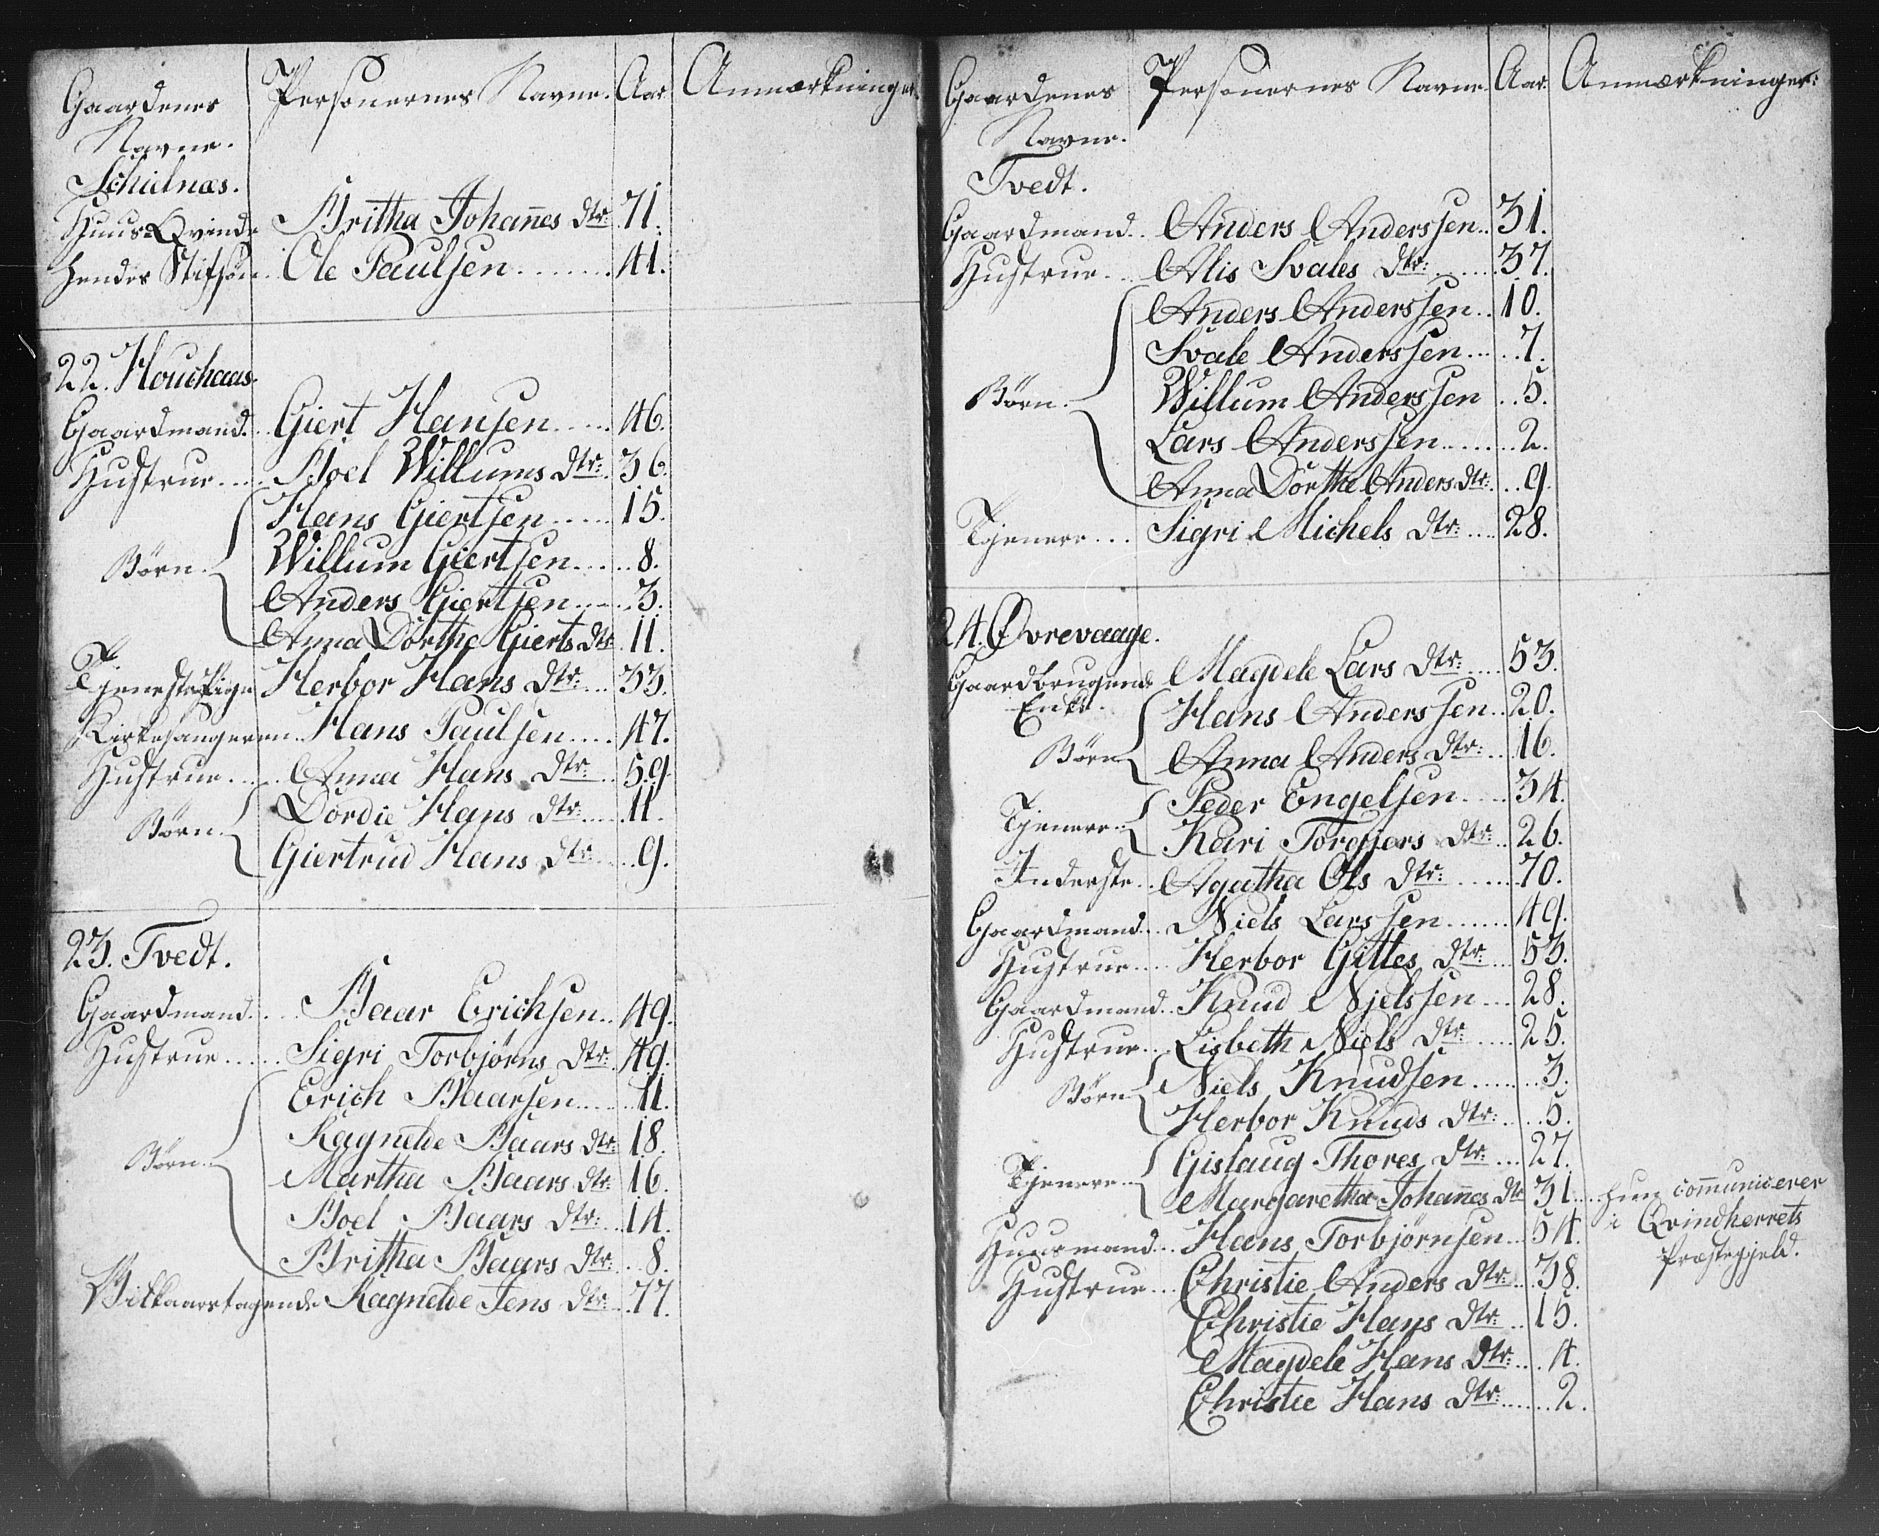 Gaardenes Navne. Personernes Navne. Aar Anmærkninger
Schielnæs.
Huus-Qvinde Britha Johañes Dtr: 71.
hendes Stifsøn Ole Paulsen 41.
22. Houchaas.
Gaardmand. Giert Hansen 46.
Hustrue Boel Willums Dtr: 36.
Hans Giertsen 15.
Børn Willum Giertsen 8.
Anders Giertsen 3.
Anna Dorthe Gierts Dtr 11.
Tjenestepige Herbor Hans Dtr: 33.
Kirkesangeren Hans Paulsen 47.
Hustrue Anna Hans Dtr: 59.
Børn Dordie Hans Dtr: 11.
Giertrud Hans Dtr: 9.
23. Tvedt.
Gaardmand. Baar Erichsen 49.
Hustrue Sigri Torbjørns Dtr: 49.
Erich Baarsen 11.
Ragnelde Baars Dtr: 18.
Børn Martha Baars Dtr: 16.
Boel Baars Dtr: 14.
Britha Baars Dtr: 8.
Vilkaarstagende Ragnelde Jens Dtr: 77.
Gaardenes Navne. Personernes Navne. Aar. Anmærkninger:
Tvedt.
Gaardmand Anders Anderssen 31.
Hustrue Alis Svales Dtr: 37.
Anders Anderssen 10.
Svale Anderssen 7.
Børn Willum Anderssen 5.
Lars Anderssen 2.
Anna Dorthe Anders Dtr: 9.
Tjenere Sigri Michels Dtr: 28.
24. Øvrevaage.
Gaardbrugende Magdele Lars Dtr: 53.
Enke. Hans Anderssen 20.
Børn Anna Anders Dtr: 16.
Peder Engelsen 34.
Tjenere Kari Torgjers Dtr: 26.
Inderste Agatha Ols Dtr: 70.
Gaardmand Niels Larssen 49.
Hustrue Herbor Gittes Dtr: 53.
Gaardmand Knud Njelssen 28.
Hustrue Lisbeth Niels Dtr: 25.
Børn Niels Knudsen 3.
Herbor Knuds Dtr: 5.
Gislaug Thores Dtr: 27.
Tjenere Margaretha Johañes Dtr 31. hun com̄unicerer
Huusmand Hans Torbjørnsen 54. i Qvindherrets
Hustrue Christie Anders Dtr: 38. Præstegjeld.
Christie Hans Dtr: 15.
Magdele Hans Dtr: 4.
Christie Hans Dtr: 2.